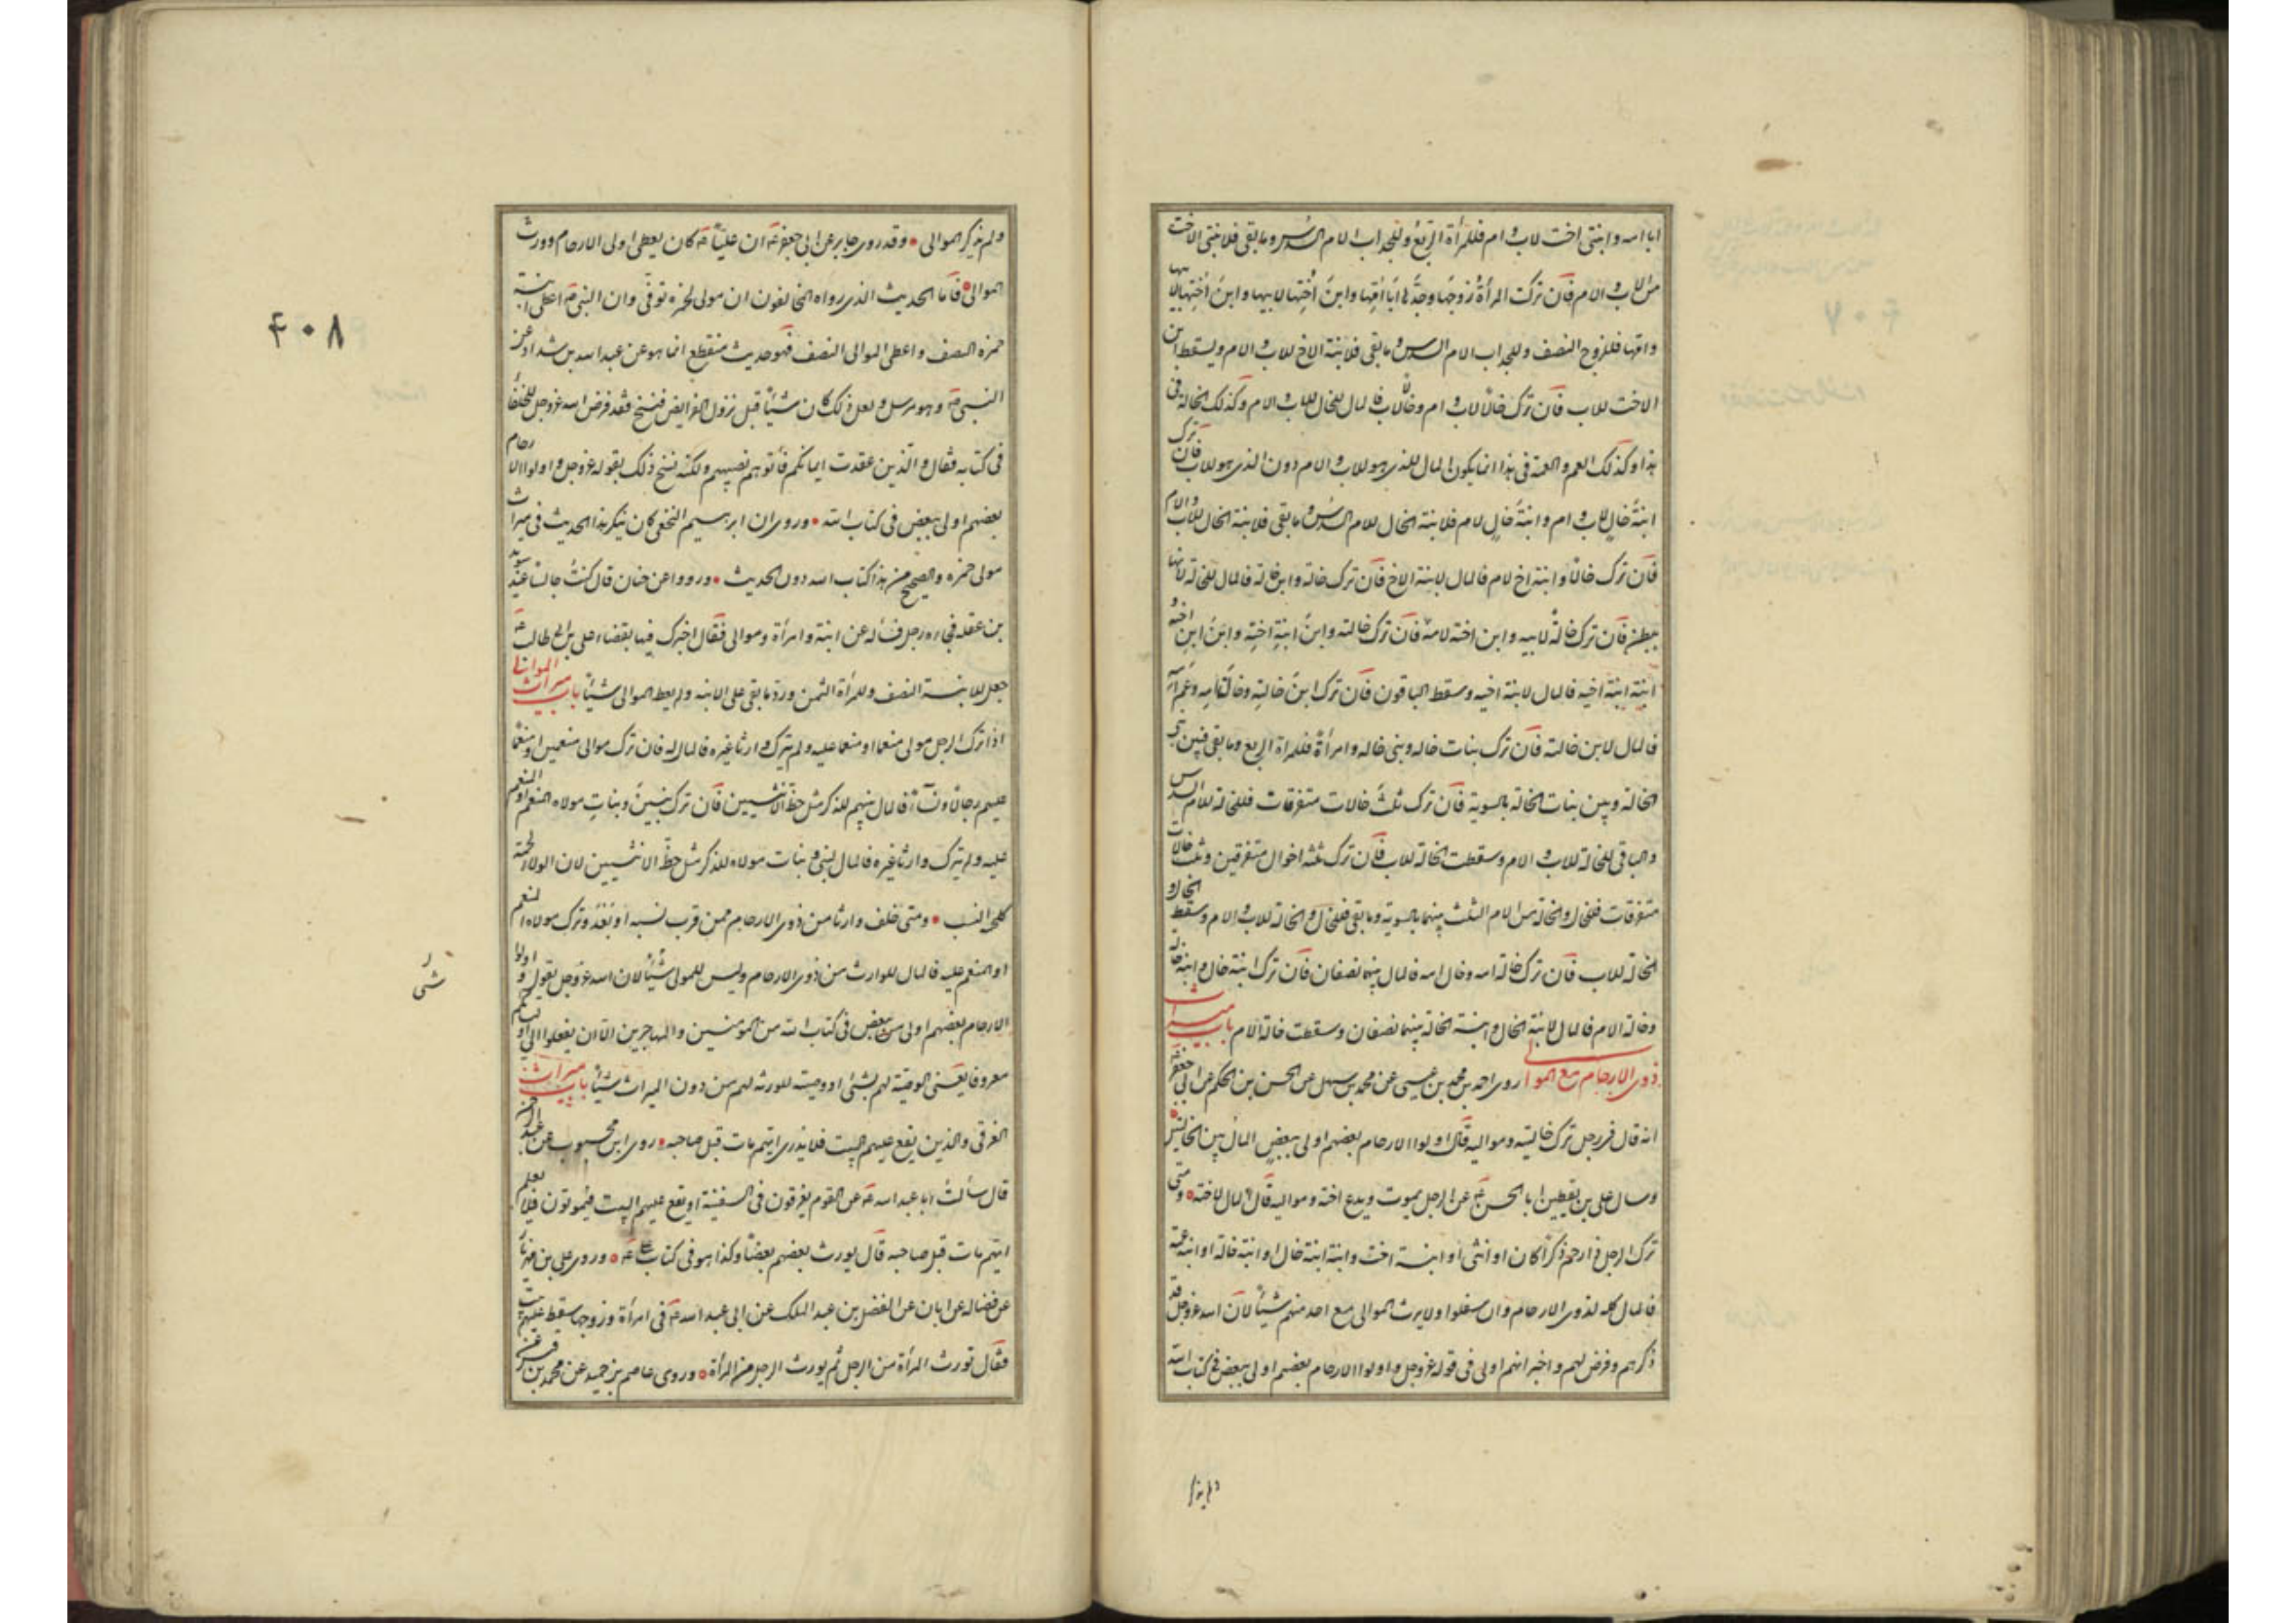 ابا امه وابنتی اخت لاب وام فللمرأة الربع وللجد اب الام السدس وما بقی فلابنتی الاخت
من الاب والام فان ترکت المرأة زوجها وجدها ابا امها وابن اختها لابیها وابن اختها لابیها
وامها فللزوج النصف وللجد اب الام السدس وما بقی فلابنة الاخ للاب والام ویسقط ابن
الاخت للاب فان ترک خالا لاب وام وخالا لاب فالمال للخال للاب والام وکذلک الخالة فی
هذا وکذلک العم والعمة فی هذا انما یکون المال للذی هو للاب والام دون الذی هو للاب فان ترک
ابنة خال لاب وام وابنة خال لام فلابنة الخال للام السدس وما بقی فلابنة الخال للاب والام
فان ترک خالا وابنة اخ لام فالمال لابنة الاخ فان ترک خالة وابن خالة فالمال للخالة لانها
ببطن فان ترک خالة لابیه وابن اخته لامه فان ترک خالته وابن ابنة اخته وابن ابن اخته و
ابنة ابنة اخیه فالمال لابنة اخیه وسقط الباقون فان ترک ابن خالته وخالة امه وعم امه
فالمال لابن خالته فان ترک بنات خاله وبنی خاله وامرأة فللمرأة الربع وما بقی فبین بنی
الخالة وبین بنات الخالة بالسویة فان ترک ثلث خالات متفرقات فللخالة للام السدس
والباقی للخالة للاب والام وسقطت الخالة للاب فان ترک ثلثه اخوال متفرقین وثلث خالات
متفرقات فللخال والخالة من الام الثلث بینهما بالسویة وما بقی فللخال والخالة للاب والام وسقط الخال و
الخالة للاب فان ترک خالة امه وخال امه فالمال بینهما نصفان فان ترک ابنة خال وابنة خالة
وخالة الام فالمال لابنة الخال وابنة الخالة بینهما نصفان وسقطت خالة الام باب میراث
ذوی الارحام مع الموالی روی احمد بن محمد بن عیسی عن محمد بن سهل عن الحسن بن الحکم عن ابی جعفر ع
انه قال فی رجل ترک خالتیه وموالیه قال اولوا الارحام بعضهم اولی ببعض المال بین الخالتین
وسال علی بن یقطین ابا الحسن ع عن الرجل یموت ویدع اخته وموالیه قال المال لاخته ومتی
ترک الرجل ذا رحم ذکرا کان او انثی او ابنة اخت وابنة ابنة خال او ابنة خالة او ابنة عمة
فالمال کله لذوی الارحام وان سفلوا ولا یرث الموالی مع احد منهم شیئا لان الله عز وجل قد
ذکرهم وفرض لهم واخبر انهم اولی فی قوله عز وجل واولوا الارحام بعضهم اولی ببعض فی کتاب الله
ولم یذکر
ولم یذکر الموالی وقد روی جابر عن ابی جعفر ع ان علیا ع کان یعطی اولی الارحام دون
الموالی فاما الحدیث الذی رواه المخالفون ان مولی لحمزه توفی وان النبی ص اعطی ابنة
حمزه النصف واعطی الموالی النصف فهو حدیث منقطع انما هو عن عبد الله بن شداد عن
النبی ص وهو مرسل ولعل ذلک کان شیئا قبل نزول الفرایض فنسخ فقد فرض الله عز وجل للحلفاء
فی کتابه فقال والذین عقدت ایمانکم فاتوهم نصیبهم ولکنه نسخ ذلک بقوله عز وجل واولوا الارحام
بعضهم اولی ببعض فی کتاب الله وروی ان ابرهیم النخعی کان ینکر هذا الحدیث فی میراث
مولی حمزه والصحیح من هذا کتاب الله دون الحدیث ورووا عن حنان قال کنت جالسا عند سوید
بن عفله فجاءه رجل فسأله عن ابنة وامرأة وموالی فقال اخبرک فیها بقضاء علی بن ابی طالب ع
جعل للابنة النصف وللمرأة الثمن ورد ما بقی علی الابنه ولم یعط الموالی شیئا باب میراث الموالی
اذا ترک الرجل مولی منعما او منعما علیه ولم یترک وارثا غیره فالمال له فان ترک موالی منعمین او منعما
علیهم رجالا ونساء فالمال بینهم للذکر مثل حظ الانثیین فان ترک بنین وبنات مولاه المنعم او المنعم
علیه ولم یترک وارثا غیره فالمال لبنی وبنات مولاه للذکر مثل حظ الانثیین لان الولاء لحمة
کلحمة النسب ومتی خلف وارثا من ذوی الارحام ممن قرب نسبه او بعد وترک مولاه المنعم
او المنعم علیه فالمال للوارث من ذوی الارحام ولیس للمولی شیئا لان الله عز وجل یقول واولوا
الارحام بعضهم اولی ببعض فی کتاب الله من المؤمنین والمهاجرین الا ان یفعلوا الی اولیائکم
معروفا یعنی الوصیة لهم بشئ او وصیة للورثه لهم من دون المیراث شیئا باب میراث
الغرقی والذین یقع علیهم البیت فلا یدری ایهم مات قبل صاحبه روی ابن محبوب عن عبد الرحمن
قال سألت ابا عبد الله ع عن القوم یغرقون فی السفینة او یقع علیهم البیت فیموتون فلا یعلم
ایهم مات قبل صاحبه قال یورث بعضهم بعضا وکذا هو فی کتاب علی ع وروی علی بن مهزیار
عن فضاله عن ابان عن الفضل بن عبد الملک عن ابی عبد الله ع فی امرأة وزوجها سقط علیهما بیت
فقال تورث المرأة من الرجل ثم یورث الرجل من المرأة وروی عاصم بن حمید عن محمد بن قیس عن
۴۰۸